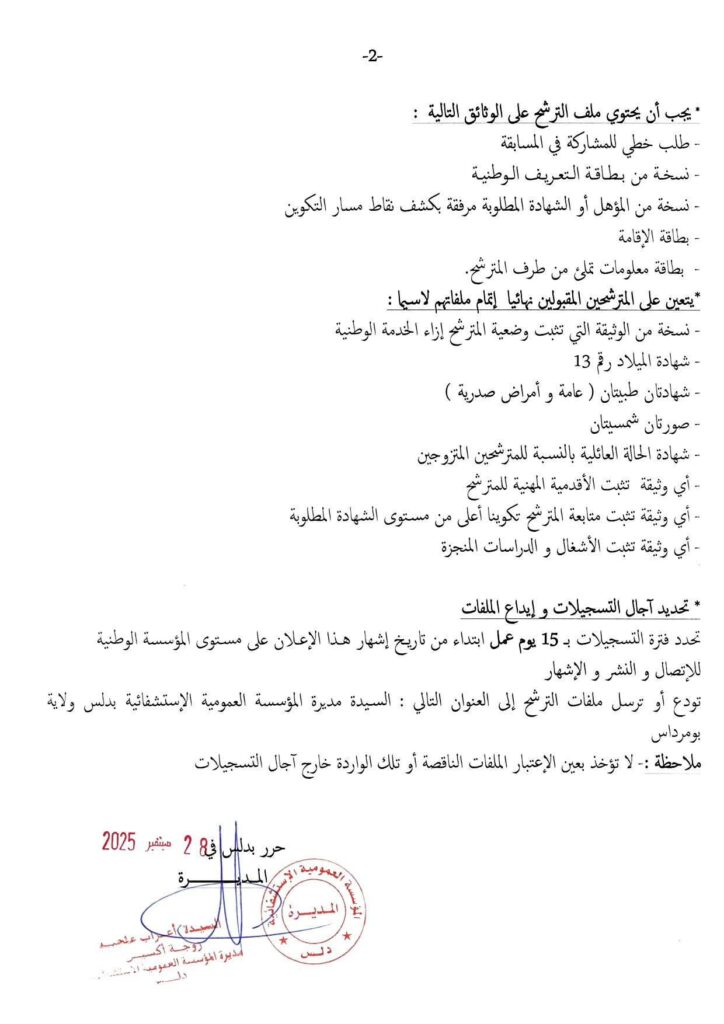 -2-
* يجب أن يحتوي ملف الترشح على الوثائق التالية :
- طلب خطي للمشاركة في المسابقة
- نسخة من بطاقة التعريف الوطنية
- نسخة من المؤهل أو الشهادة المطلوبة مرفقة بكشف نقاط مسار التكوين
- بطاقة الإقامة
- بطاقة معلومات تملئ من طرف المترشح.
*يتعين على المترشحين المقبولين نهائيا إتمام ملفاتهم لاسيما :
- نسخة من الوثيقة التي تثبت وضعية المترشح إزاء الخدمة الوطنية
- شهادة الميلاد رقم 13
- شهادتان طبيتان ( عامة و أمراض صدرية )
- صورتان شمسيتان
- شهادة الحالة العائلية بالنسبة للمترشحين المتزوجين
- أي وثيقة تثبت الأقدمية المهنية للمترشح
- أي وثيقة تثبت متابعة المترشح تكوينا أعلى من مستوى الشهادة المطلوبة
- أي وثيقة تثبت الأشغال و الدراسات المنجزة
* تحديد آجال التسجيلات و إيداع الملفات
تحدد فترة التسجيلات بـ 15 يوم عمل ابتداء من تاريخ إشهار هذا الإعلان على مستوى المؤسسة الوطنية
للإتصال و النشر و الإشهار
تودع أو ترسل ملفات الترشح إلى العنوان التالي : السيدة مديرة المؤسسة العمومية الإستشفائية بدلس ولاية
بومرداس
ملاحظة :- لا تؤخذ بعين الإعتبار الملفات الناقصة أو تلك الواردة خارج آجال التسجيلات
حرر بدلس في 28 سبتمبر 2025
المديرة
المؤسسة العمومية الإستشفائية
المديرة
دلس
السيدة أعراب
زوجة أكسير
مديرة المؤسسة العمومية
دلس